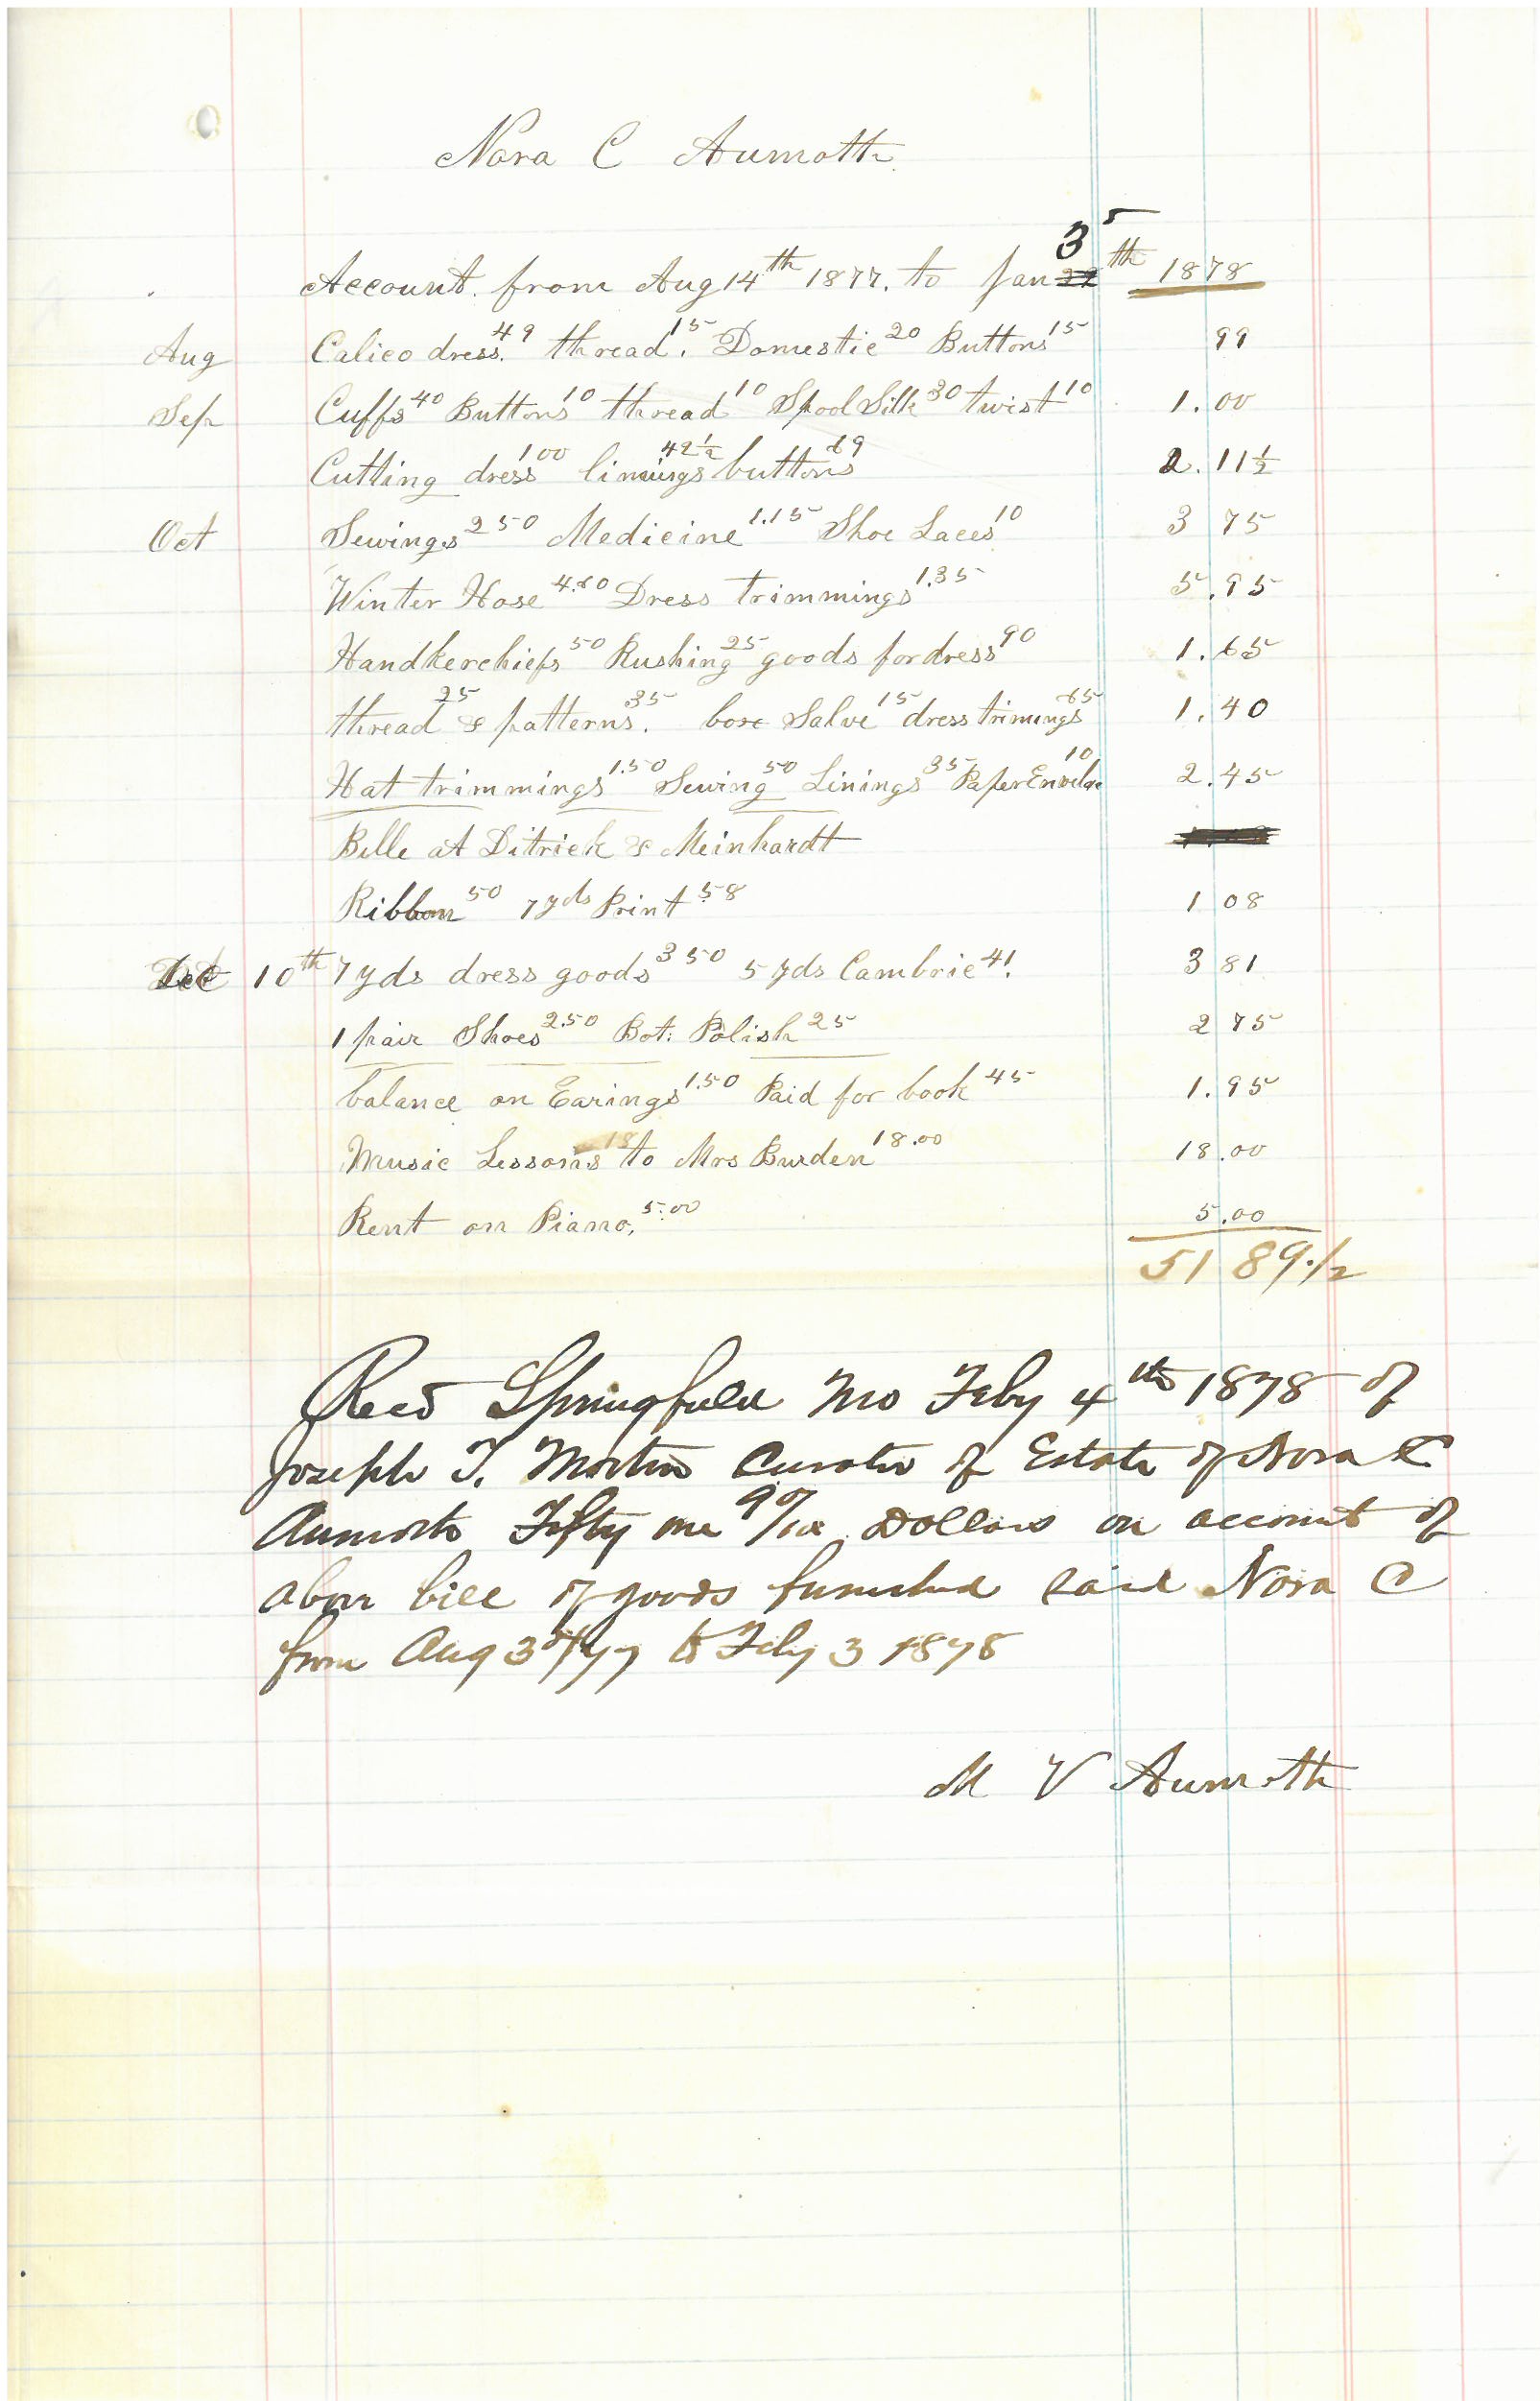 Nora C Aumoth
Account. from Aug 14th 1877. to Jan 35th 1878
Aug Calico dress. 49 thread. 15 Domestic 20 Buttons 15 99
Sep Cuffs 40 Buttons 10 thread 10 Spool Silk 30 twist 10 1.00
Cutting dress 1 00 linings 42½ buttons 69 2.11½
Oct Sewings 2 50 Medicine 1.15 Shoe Laces 10 3 75
Winter Hose 4.60 Dress trimmings 1.35 5.95
Handkerchiefs 50 Rushing 25 goods for dress 90 1.65
thread 25 & patterns. 35 bore Salve 15 dress trimings 65 1.40
Hat trimmings 1.50 Sewing 50 Linings 35 Paper Envelope 10 2.45
Bille at Ditrick & Meinhardt
Ribbon 50 7 yds Print 58 1 08
Dec 10th 7 yds dress goods 3 50 5 yds Cambric 41. 3 81
1 pair Shoes 2.50 Bot: Polish 25 2 75
balance on Earings 1.50 Paid for book 45 1.95
Music Lessons to Mrs Burden 18.00 18.00
Rent on Piano, 5.00 5.00
51 89½
Recd Springfield Mo Feby 4th 1878 of
Joseph T. Morton Curator of Estate of Nora C
Aumoth Fifty one 90/100 Dollars on account of
above bill of goods furnished said Nora C
from Aug 3d/77 to Feby 3 1878
M V Aumoth